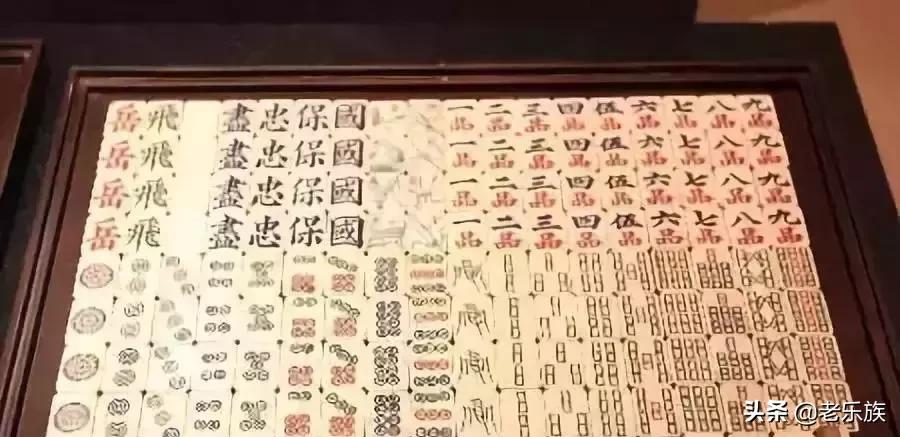 岳飛 盡忠保國 一品 二品 三品 四品 伍品 六品 七品 八品 九品
岳飛 盡忠保國 一品 二品 三品 四品 伍品 六品 七品 八品 九品
岳飛 盡忠保國 一品 二品 三品 四品 伍品 六品 七品 八品 九品
岳飛 盡忠保國 一品 二品 三品 四品 伍品 六品 七品 八品 九品
头条 @老乐族